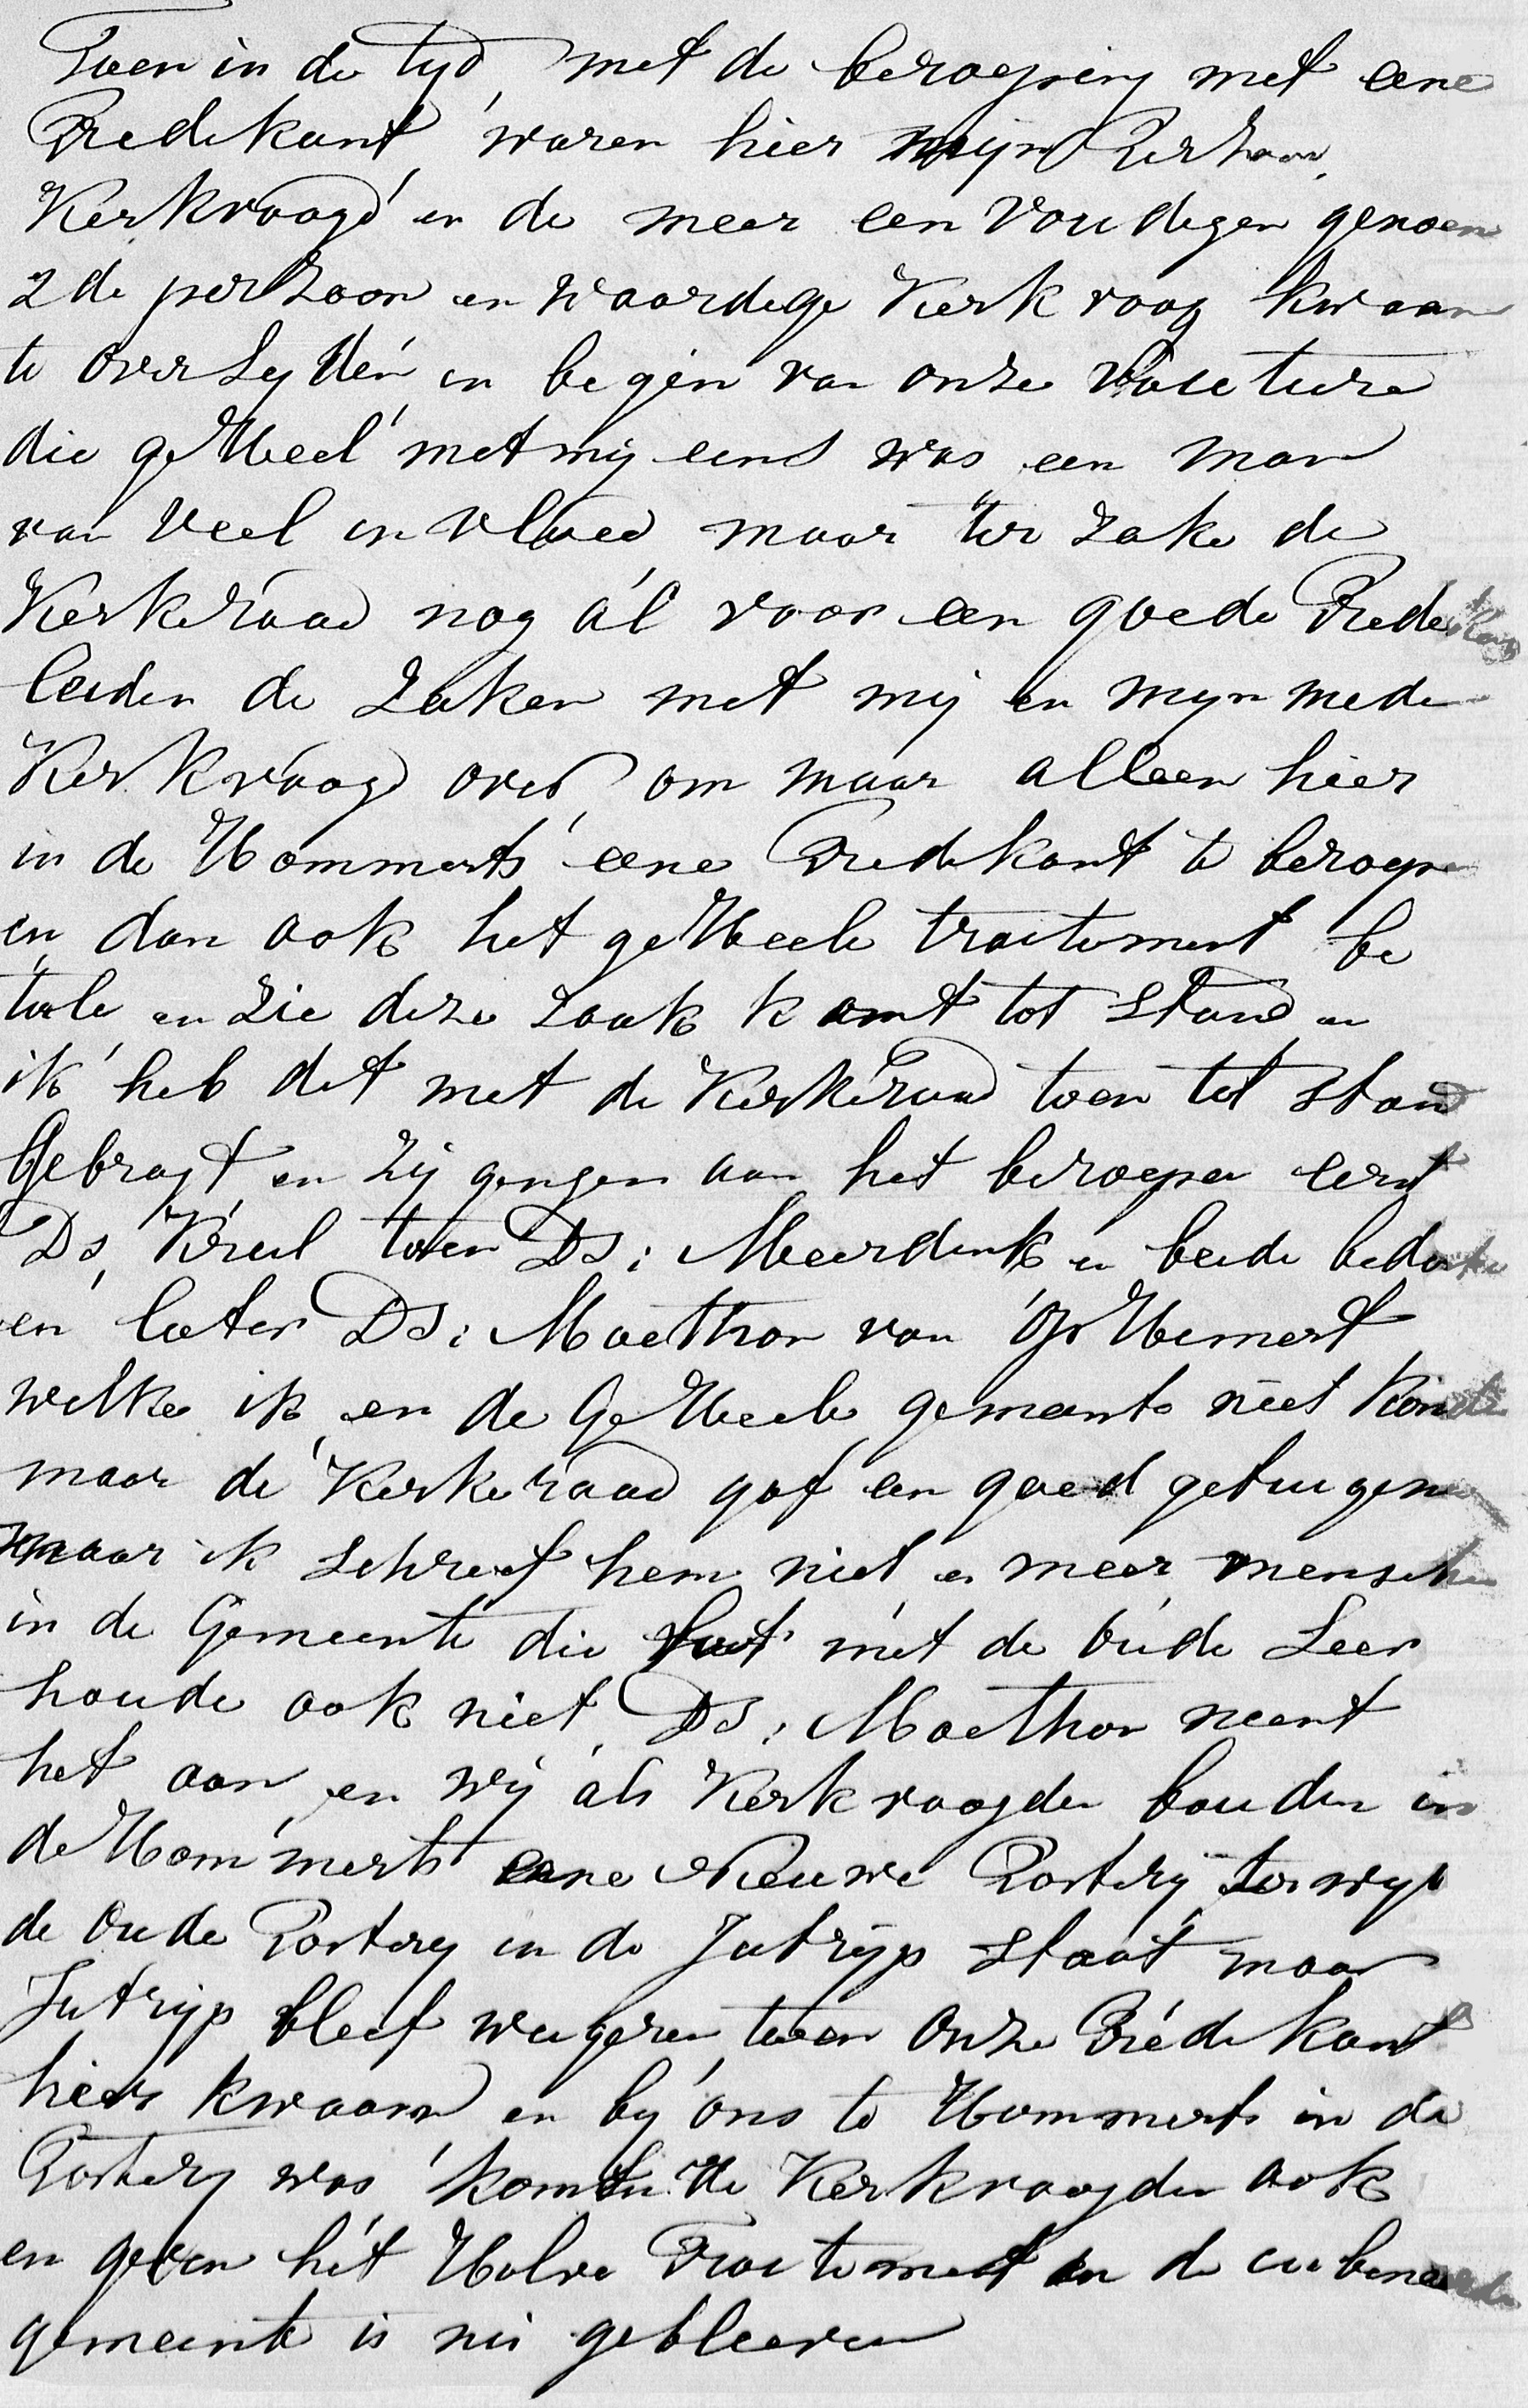 Toen in de tyd met de beroeping met eene
Predikant waren hier mijn Perzoon
Kerkvoogd en de meer een voudegen genoem
2de perzoon en waardege Kerk voog kwaam
te overLyden in begin van onze vacuture
die geHeel met mij eens was een man
van veel in vloed maar ter zake de
Kerkeraad nog al voor een goede Predekan
leiden de Zaken met mij en myn mede
Kerkvoog over om maar alleen hier
in de Hommerts eene Predekant te beroepe
en dan ook het geHeele traitement be
tale en zie deze zaak komt tot Stand en
ik heb dit met de Kerkeraad toen tot stand
Gebragt en Zij gengen aan het beroepen eerst
Ds Kreul toen Ds: Meerdink en beide bedankte
en later Ds: Maethor van Op Hemert
welke ik en de GeHeele gemeente niet konde
maar de Kerkeraad gaf een goed getuigen
maar ik Schreef hem niet en meer menschen
in de Gemeente die het met de oude Leer
houde ook niet Ds: Maethor neemt
het aan en wij als Kerkvoogden bouden in
de Hommerts eene Nieuwe Pastery terwyl
de oude Pastory in de Jutryp Staat maar
Jutryp bleef weigeren toen onze Predekant
hier kwaam en by ons te Hommerts in de
Pastory was komen de Kerkvoogden ook
en geven het Halve Traitement en de
gemeente is nu gebleeven